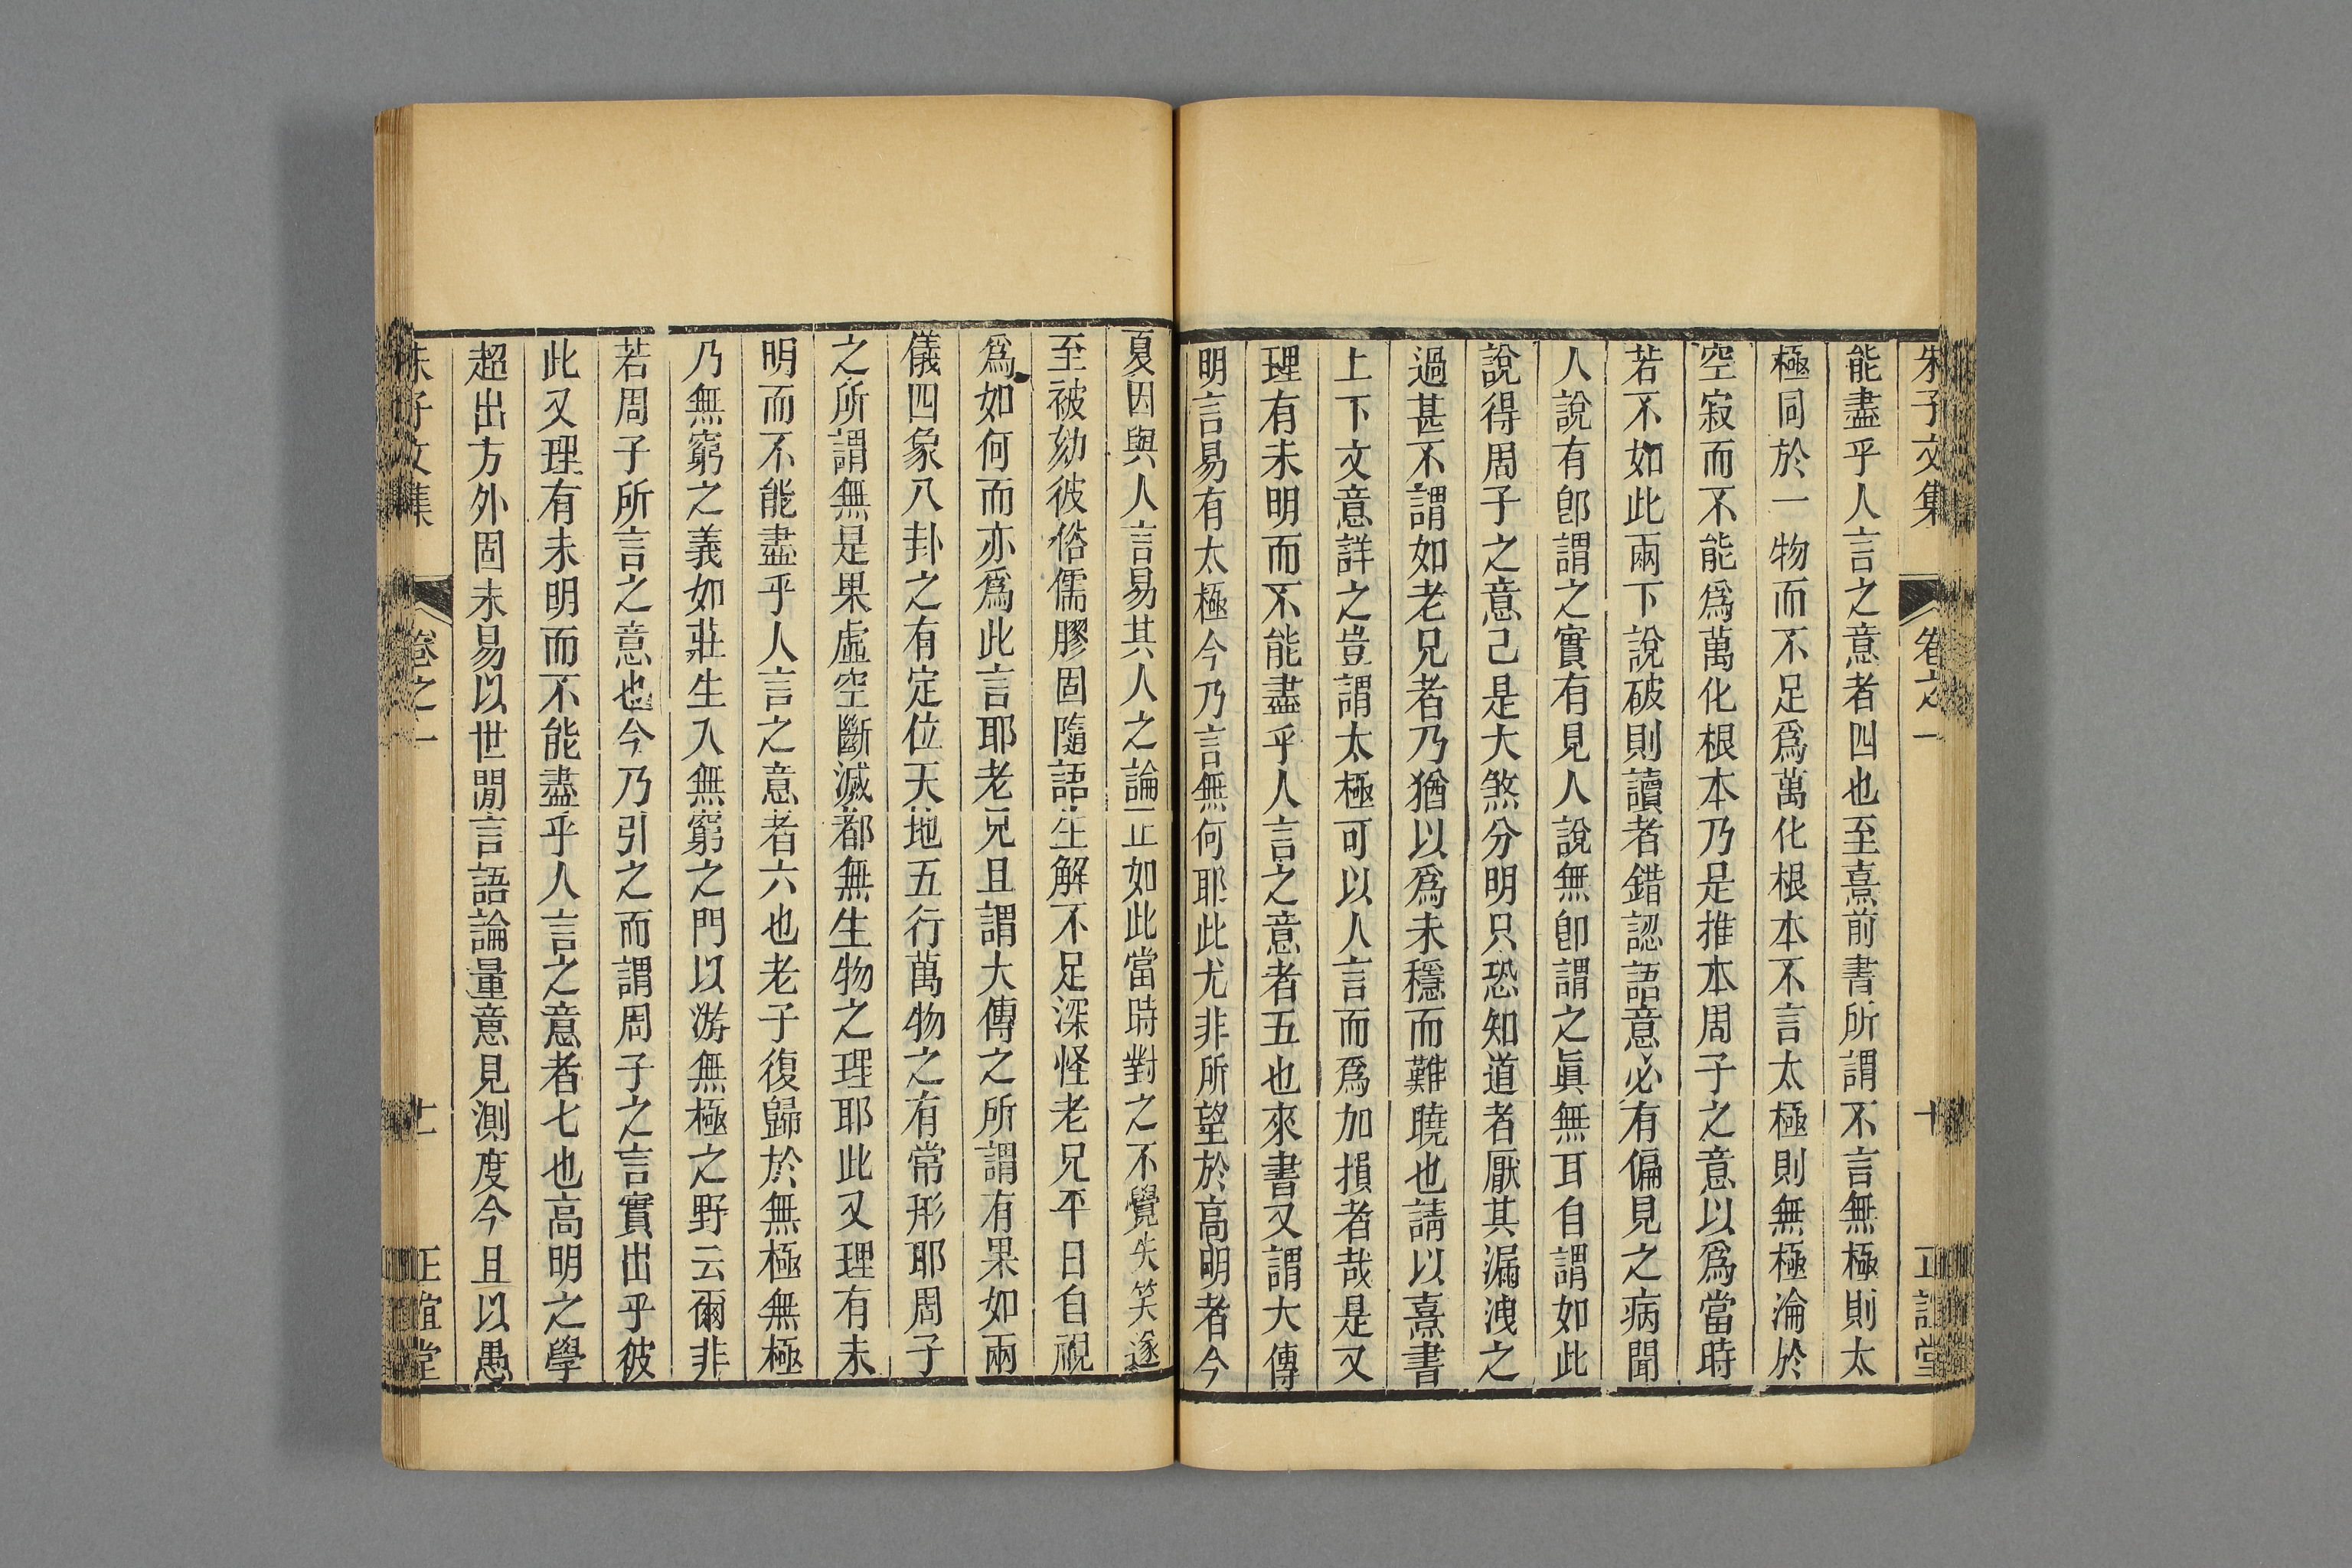 朱子文集 卷之一 十 正誼堂
能盡乎人言之意者四也至熹前書所謂不言無極則太
極同於一物而不足爲萬化根本不言太極則無極淪於
空寂而不能爲萬化根本乃是推本周子之意以爲當時
若不如此兩下說破則讀者錯認語意必有偏見之病聞
人說有卽謂之實有見人說無卽謂之眞無耳自謂如此
說得周子之意己是大煞分明只恐知道者厭其漏洩之
過甚不謂如老兄者乃猶以爲未穩而難曉也請以熹書
上下文意詳之豈謂太極可以人言而爲加損者哉是又
理有未明而不能盡乎人言之意者五也來書又謂大傳
明言易有太極今乃言無何耶此尤非所望於高明者今
夏因與人言易其人之論正如此當時對之不覺失笑遂
至被劾彼俗儒膠固隨語生解不足深怪老兄平日自視
爲如何而亦爲此言耶老兄且謂大傳之所謂有果如兩
儀四象八卦之有定位天地五行萬物之有常形耶周子
之所謂無是果虛空斷滅都無生物之理耶此又理有未
明而不能盡乎人言之意者六也老子復歸於無極無極
乃無窮之義如莊生入無窮之門以游無極之野云爾非
若周子所言之意也今乃引之而謂周子之言實出乎彼
此又理有未明而不能盡乎人言之意者七也高明之學
超出方外固未易以世閒言語論量意見測度今且以愚
朱子文集 卷之一 十一 正誼堂